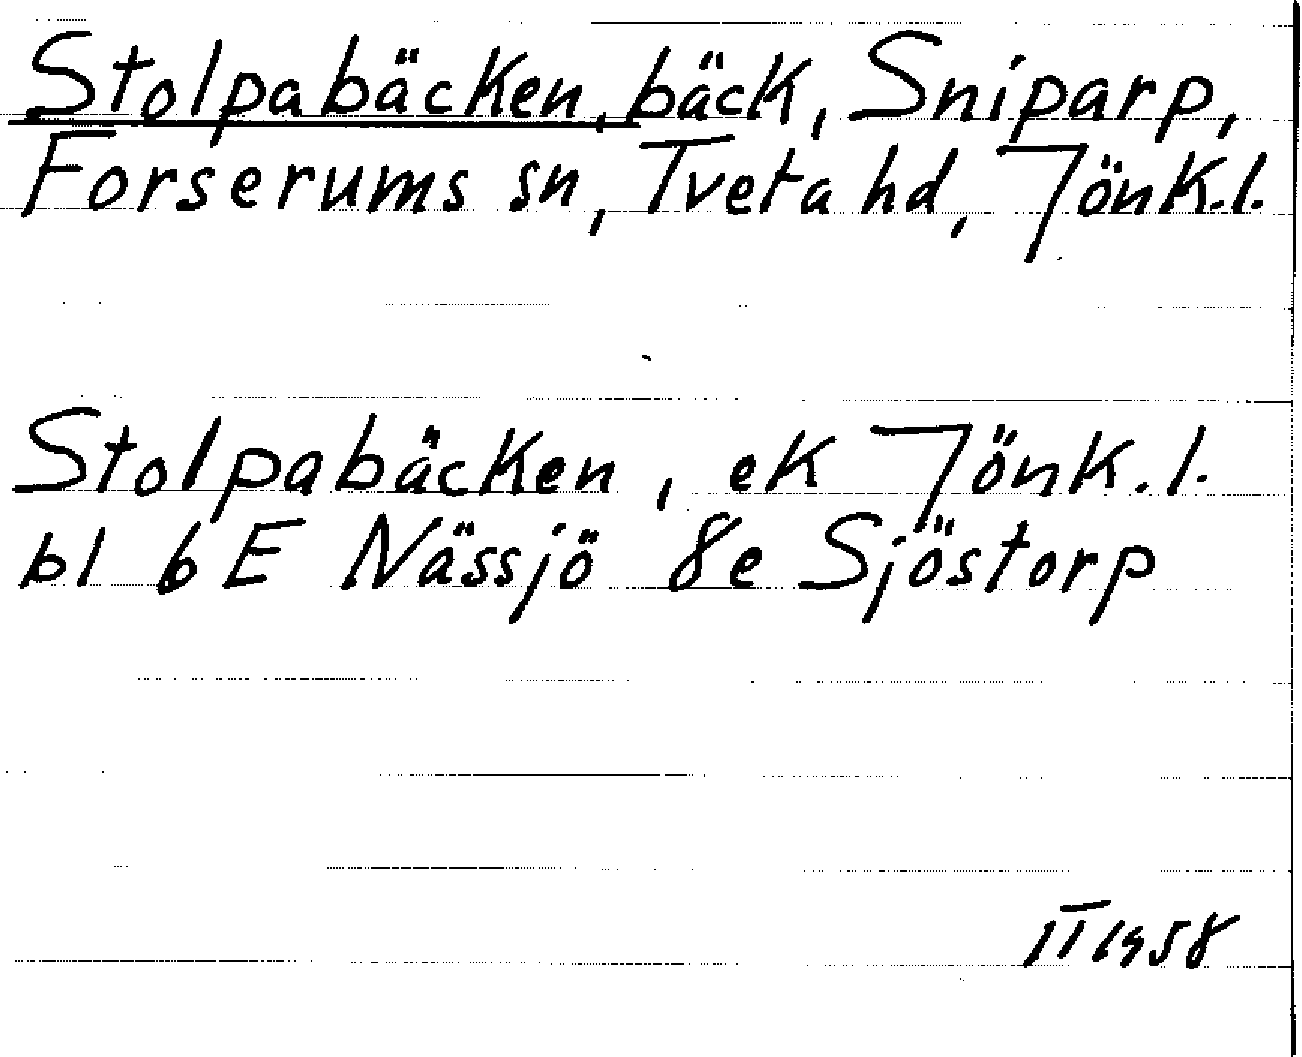 Stolpabäcken, bäck, Sniparp,
Forserums sn, Tveta hd, Jönk.l.
Stolpabäcken, ek Jönk.l.
bl 6 E Nässjö 8e Sjöstorp
II 1958